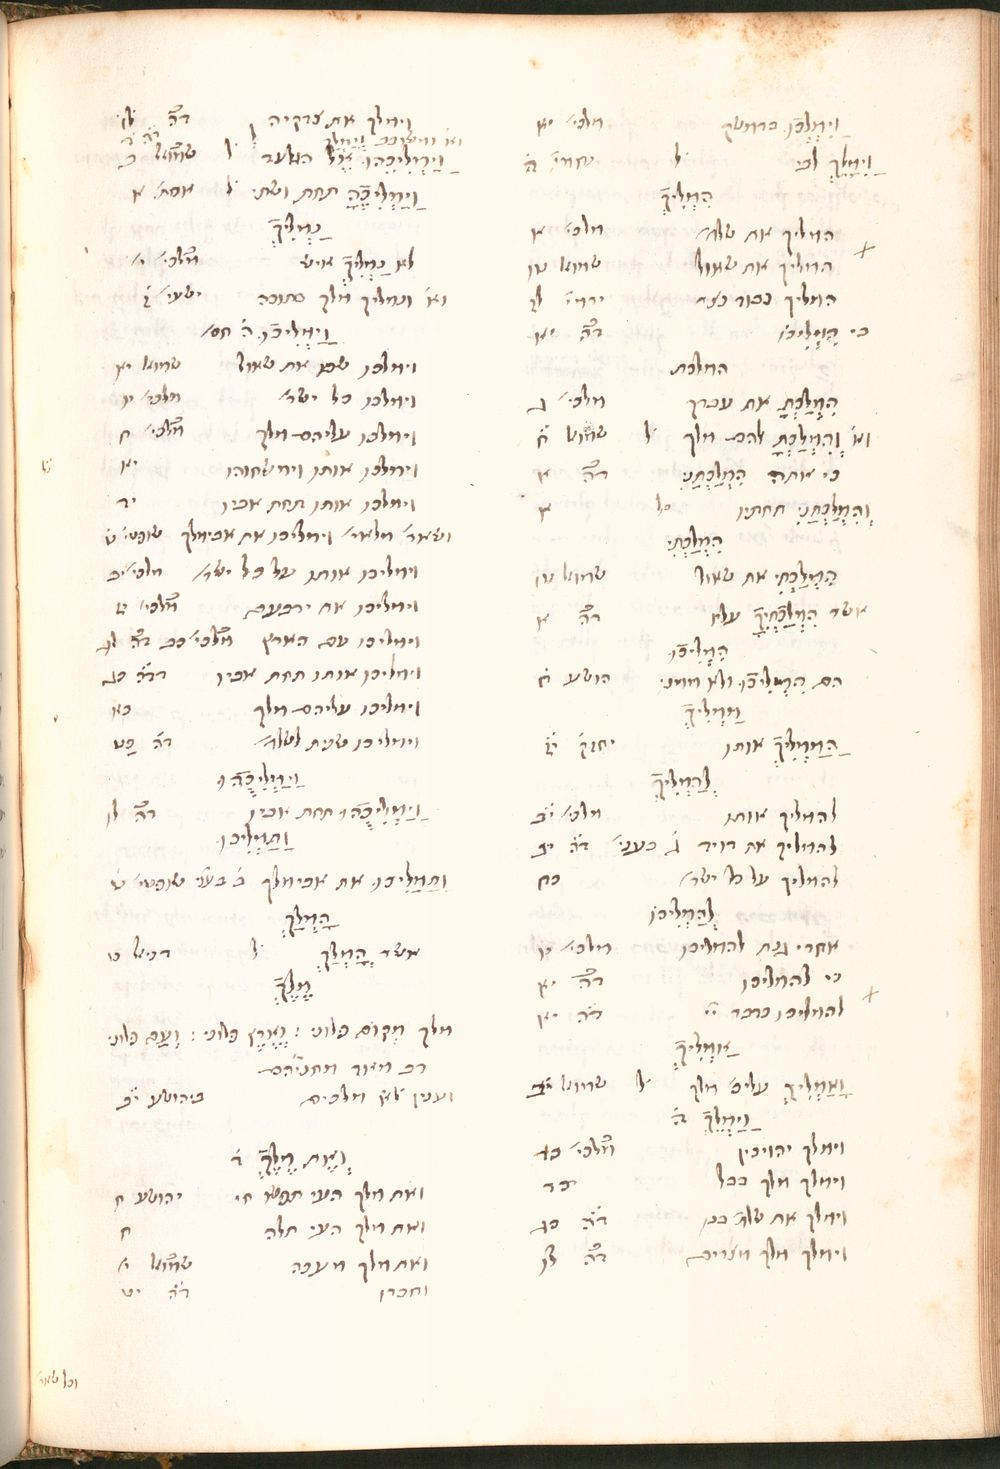 וַיִמְלְכוּ בדמשק מלכי׳ יא
וַיִמְלֹךְ לבי ל׳ נחמי׳ ה
הִמְלִיךְ
המליך את שלמ׳ מלכי׳ א
המליך את שאול שמוא׳ טו
המליך נבוכדנצ׳ ירמי׳ לז
כי הִמְלִיכוֹ דה׳ יא
המלכת
הִמְלַכְתָ את עבדך מלכי׳ ג
וא׳ וְהִמְלַכְתָ להם מלך ל׳ שמוא׳ ח
כי אתה הִמְלַכְתַנִי דה׳ א
וְהִמְלַכְתַנִי תחתיו ל׳ א
הִמְלַכְתִי
הִמְלַכְתִי את שאול שמוא׳ טו
אשר הִמְלַכְתִיךָ עליו דה׳ א
הִמְלִיכוּ
הם הִמְלִיכוּ ולא ממני הושע ח
מַמְלִיךְ
הַמַמְלִיךְ אותו יחזק׳ יז
לְהַמְלִיךְ
להמליך אותו מלכי׳ יב
להמליך את דויד ג׳ בעני׳ דה׳ יב
להמליך על כל ישר׳
לְהַמְלִיכוֹ
אחרי גנת להמליכו מלכי׳ יו
כי להמליכו דה׳ יא
להמליכו כדבר יי׳ דה׳ יא
אַמְלִיךְ
וָאַמְלִיךְ עליכ׳ מלך ל׳ שמוא׳ יב
וַיַמְלֵךְ ה׳
וימלך יהויכין מלכי׳ כד
וימלך מלך בבל כד
וימלך את שלמ׳ בנו דה׳ כג
וימלך מלך מצרים דה׳ לו
וימלך את צדקיה דה׳ לו
וא׳ וישבוב וימלך
וַיַמְלִיכֵהוּ אל הגלעד ל׳ שמוא׳ ב
וַיַמְלִיכֶהָ תחת ושתי ל׳ אסת׳ א
נַמְלִיךְ
לא נַמְלִיךְ איש מלכי׳ י
וא׳ ונמליך מלך בתוכה ישעי׳ ז
וַיַמְלִיכוּ ה׳ חס׳
וימלכו שם את שאול שמוא׳ יא
וימלכו כל ישר׳ מלכי׳ יו
וימלכו עליהם מלך מלכי׳ ח
וימלכו אותו וימשחוהו יא
וימלכו אותו תחת אביו יד
ושאר׳ מלאי׳ וימליכו את אבימלך שופטי׳ ט
וימליכו אותו על כל ישר׳ מלכי׳ יב
וימליכו את ירבעם מלכי׳ יז
וימליכו עם הארץ מלכי׳ כב דה׳ לג
וימליכו אותו תחת אביו דה׳ כג
וימליכו עליהם מלך כא
וימליכו שנית לשלמ׳ דה׳ כט
וַיַמְלִיכֻהוּ
וַיַמְלִיכֻהוּ תחת אביו דה׳ לו
וַתַמְלִיכוּ
וַתַמְלִיכוּ את אבימלך ב׳ בעני׳ שופטי׳ ט
הָמְלַךְ
אשר הָמְלַךְ ל׳ דניאל ט
מֶלֶךְ
מלך מקום פלוני: וְאֶרֶץ פלוני: וְעַם פלוני
רב מאוד מחניהם
וענין לא׳ מלכים ביהושע יב
וְאֶת מֶלֶךְ ד׳
ואת מלך העי תפשו חי יהושע ח
ואת מלך העי תלה ח
ואת מלך מעכה שמוא׳ י
וחברו דה׳ יט
וכל שאר׳